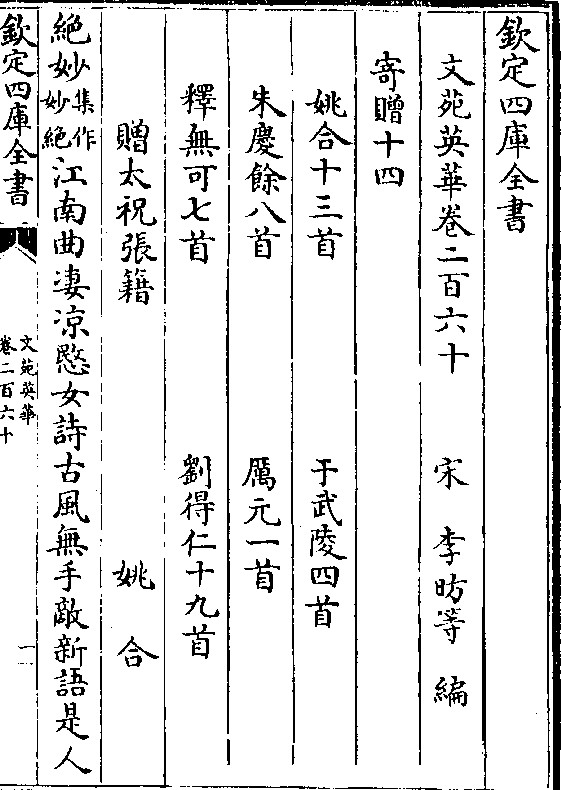 欽定四庫全書
文苑英華卷二百六十　宋　李昉等　編
寄贈十四
姚合十三首　于武陵四首
朱慶餘八首　厲元一首
釋無可七首　劉得仁十九首
贈太祝張籍　姚　合
絶妙集作妙絶江南曲淒凉愍女詩古風無手敵新語是人
欽定四庫全書
文苑英華
卷二百六十
一